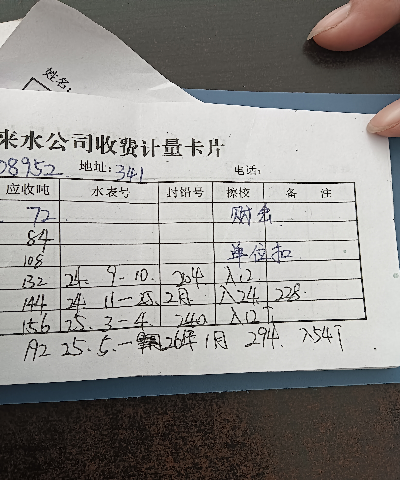 姓名:
来水公司收费计量卡片
08952 地址:341 电话:
应收吨 水表号 封铅号 擦校 备 注
72 财务
84
108 单位扣
132 24. 9-10. 204 入12.
144 24. 11-25. 2月 入24. 228.
156 25. 3-4. 240 入12下
A2 25. 5.- 26年1月 294. 入54下